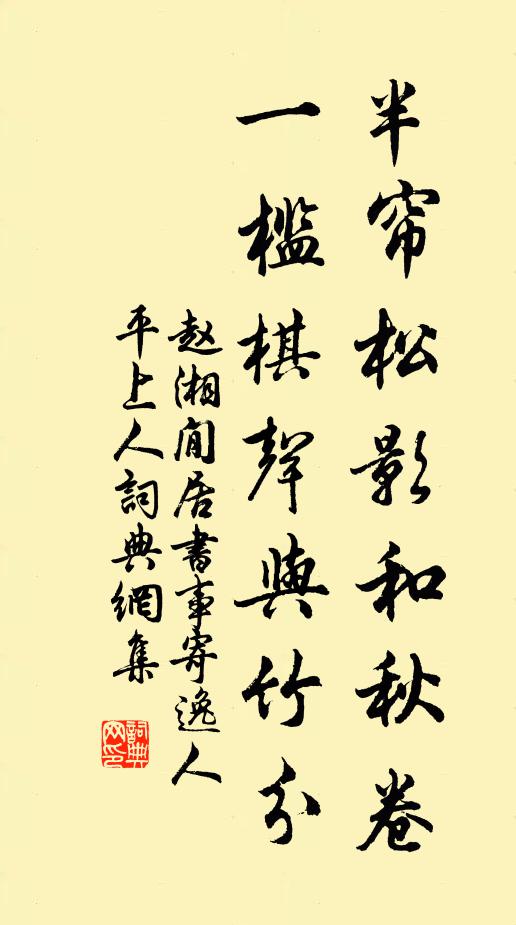 半帘松影和秋卷
一槛棋聲與竹分
赵湘闲居書事寄逸人
平上人詞典網集
詞典
网印